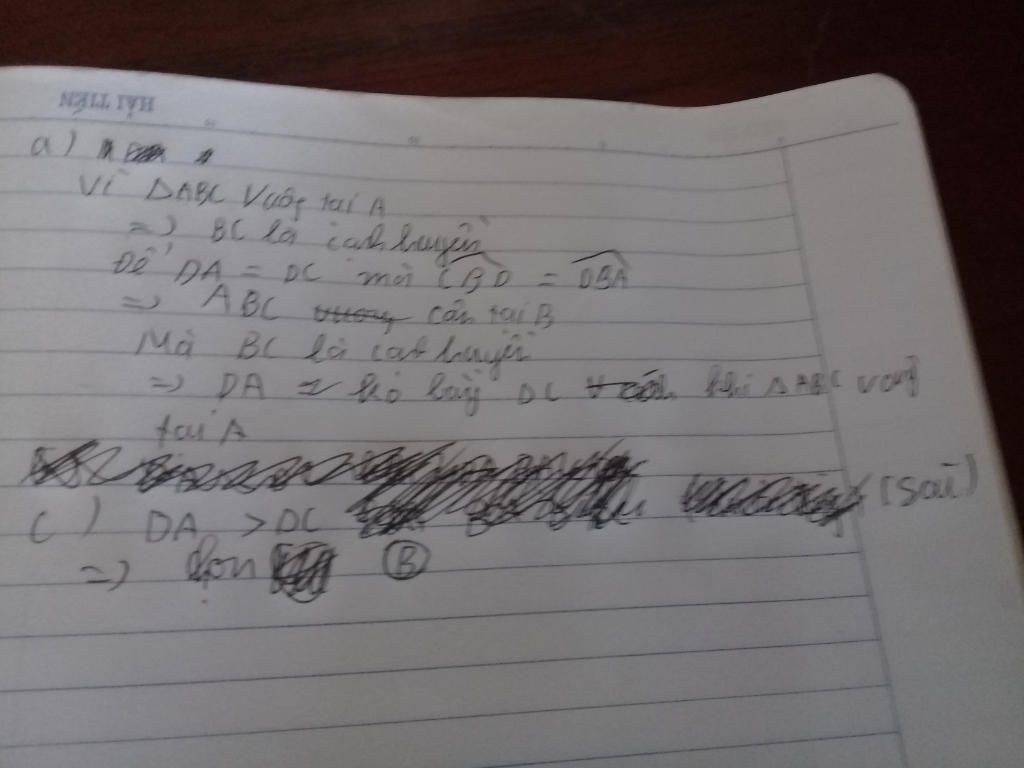 HẢI TIẾN
a)
Vì ΔABC Vuông tại A
=> BC là cạnh huyền
Để DA = DC mà CBD = DBA
=> ABC cân tại B
Mà BC là cạnh huyền
=> DA ko bằng DC khi ΔABC vuông
tại A
(sai)
c) DA > DC
=> chọn B